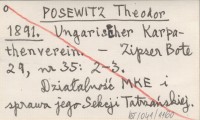 POSEWITZ Theodor
1891. Ungarischer Karpa-
thenverein. – Zipser Bote
29, nr 35: 2-3.
Działalność MKE i
sprawa jego Sekcji Tatrzańskiej.